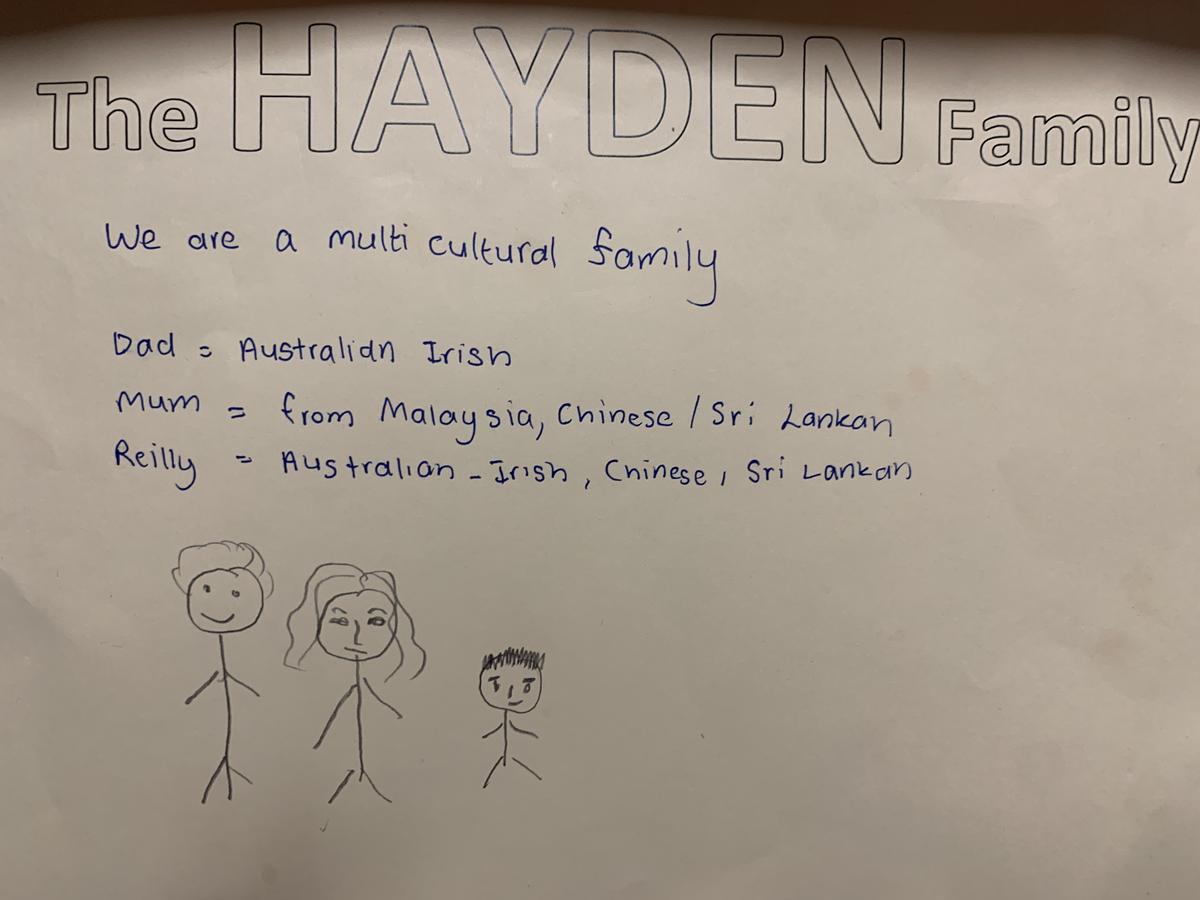 The HAYDEN Family
We are a multi cultural family
Dad = Australian Irish
Mum = from Malaysia, Chinese / Sri Lankan
Reilly = Australian - Irish, Chinese, Sri Lankan